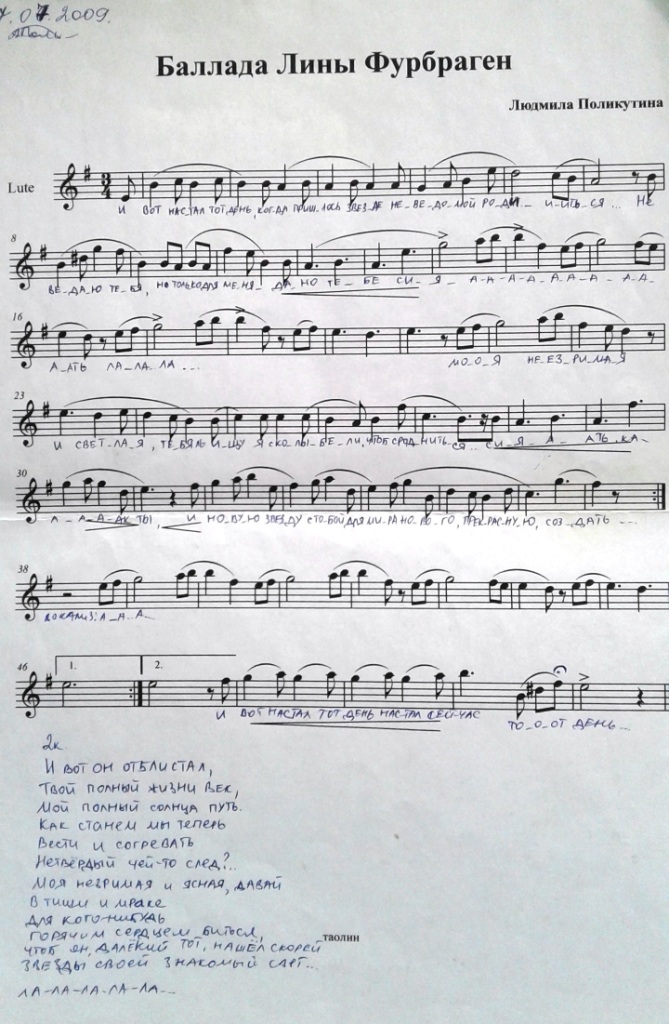 .07.2009.
Баллада Лины Фурбраген
Людмила Поликутина
Lute
3
4
И ВОТ НАСТАЛ ТОТ ДЕНЬ, КОГДА ПРИШ_ЛОСЬ ЗВЕЗ_ДЕ НЕ_ВЕ_ДО_МОЙ РО_ДИ_ И_ИТЬ_СЯ... НЕ
8
ВЕ_ДА_Ю ТЕ_БЯ, НО ТОЛЬКО ДЛЯ МЕ_НЯ_ ДА_НО ТЕ_ БЕ СИ_Я_ А_А_А_А_А_А_А_А_
16
А_АТЬ ЛА_ЛА_ЛА... МО_О_Я НЕ_ЕЗ_РИ_МА_Я
23
И СВЕТ_ЛА_Я, ТЕ_БЯ ЛЬ И_ЩУ Я С КО_ЛЫ_БЕ_ЛИ, ЧТОБ СРОД_НИТЬ_СЯ... СИ_Я_ А_ АТЬ, КА_
30
А_А_АК ТЫ, И НО_ВУ_Ю ЗВЕЗ_ДУ С ТО_БОЙ ДЛЯ МИ_РА НО_ _ГО, ПРЕК_РАС_НУ_Ю, СОЗ_ДАТЬ ...
38
ВОКАЛИЗ: А_А_А...
46
1.
2.
И ВОТ НАСТАЛ ТОТ ДЕНЬ НАСТАЛ СЕЙ-ЧАС ТО_О_ОТ ДЕНЬ...
2к.
И ВОТ ОН ОТБЛИСТАЛ,
ТВОЙ ПОЛНЫЙ ЖИЗНИ ВЕК,
МОЙ ПОЛНЫЙ СОЛНЦА ПУТЬ.
КАК СТАНЕМ МЫ ТЕПЕРЬ
ВЕСТИ И СОГРЕВАТЬ
НЕТВЁРДЫЙ ЧЕЙ-ТО СЛЕД?..
МОЯ НЕЗРИМАЯ И ЯСНАЯ, ДАВАЙ
В ТИШИ И МРАКЕ
ДЛЯ КОГО-НИБУДЬ
ГОРЯЧИМ СЕРДЦЕМ БИТЬСЯ,
таолин
ЧТОБ ОН, ДАЛЁКИЙ ТОТ, НАШЁЛ СКОРЕЙ
ЗВЕЗДЫ СВОЕЙ ЗНАКОМЫЙ СВЕТ...
ЛА-ЛА-ЛА-ЛА-ЛА...